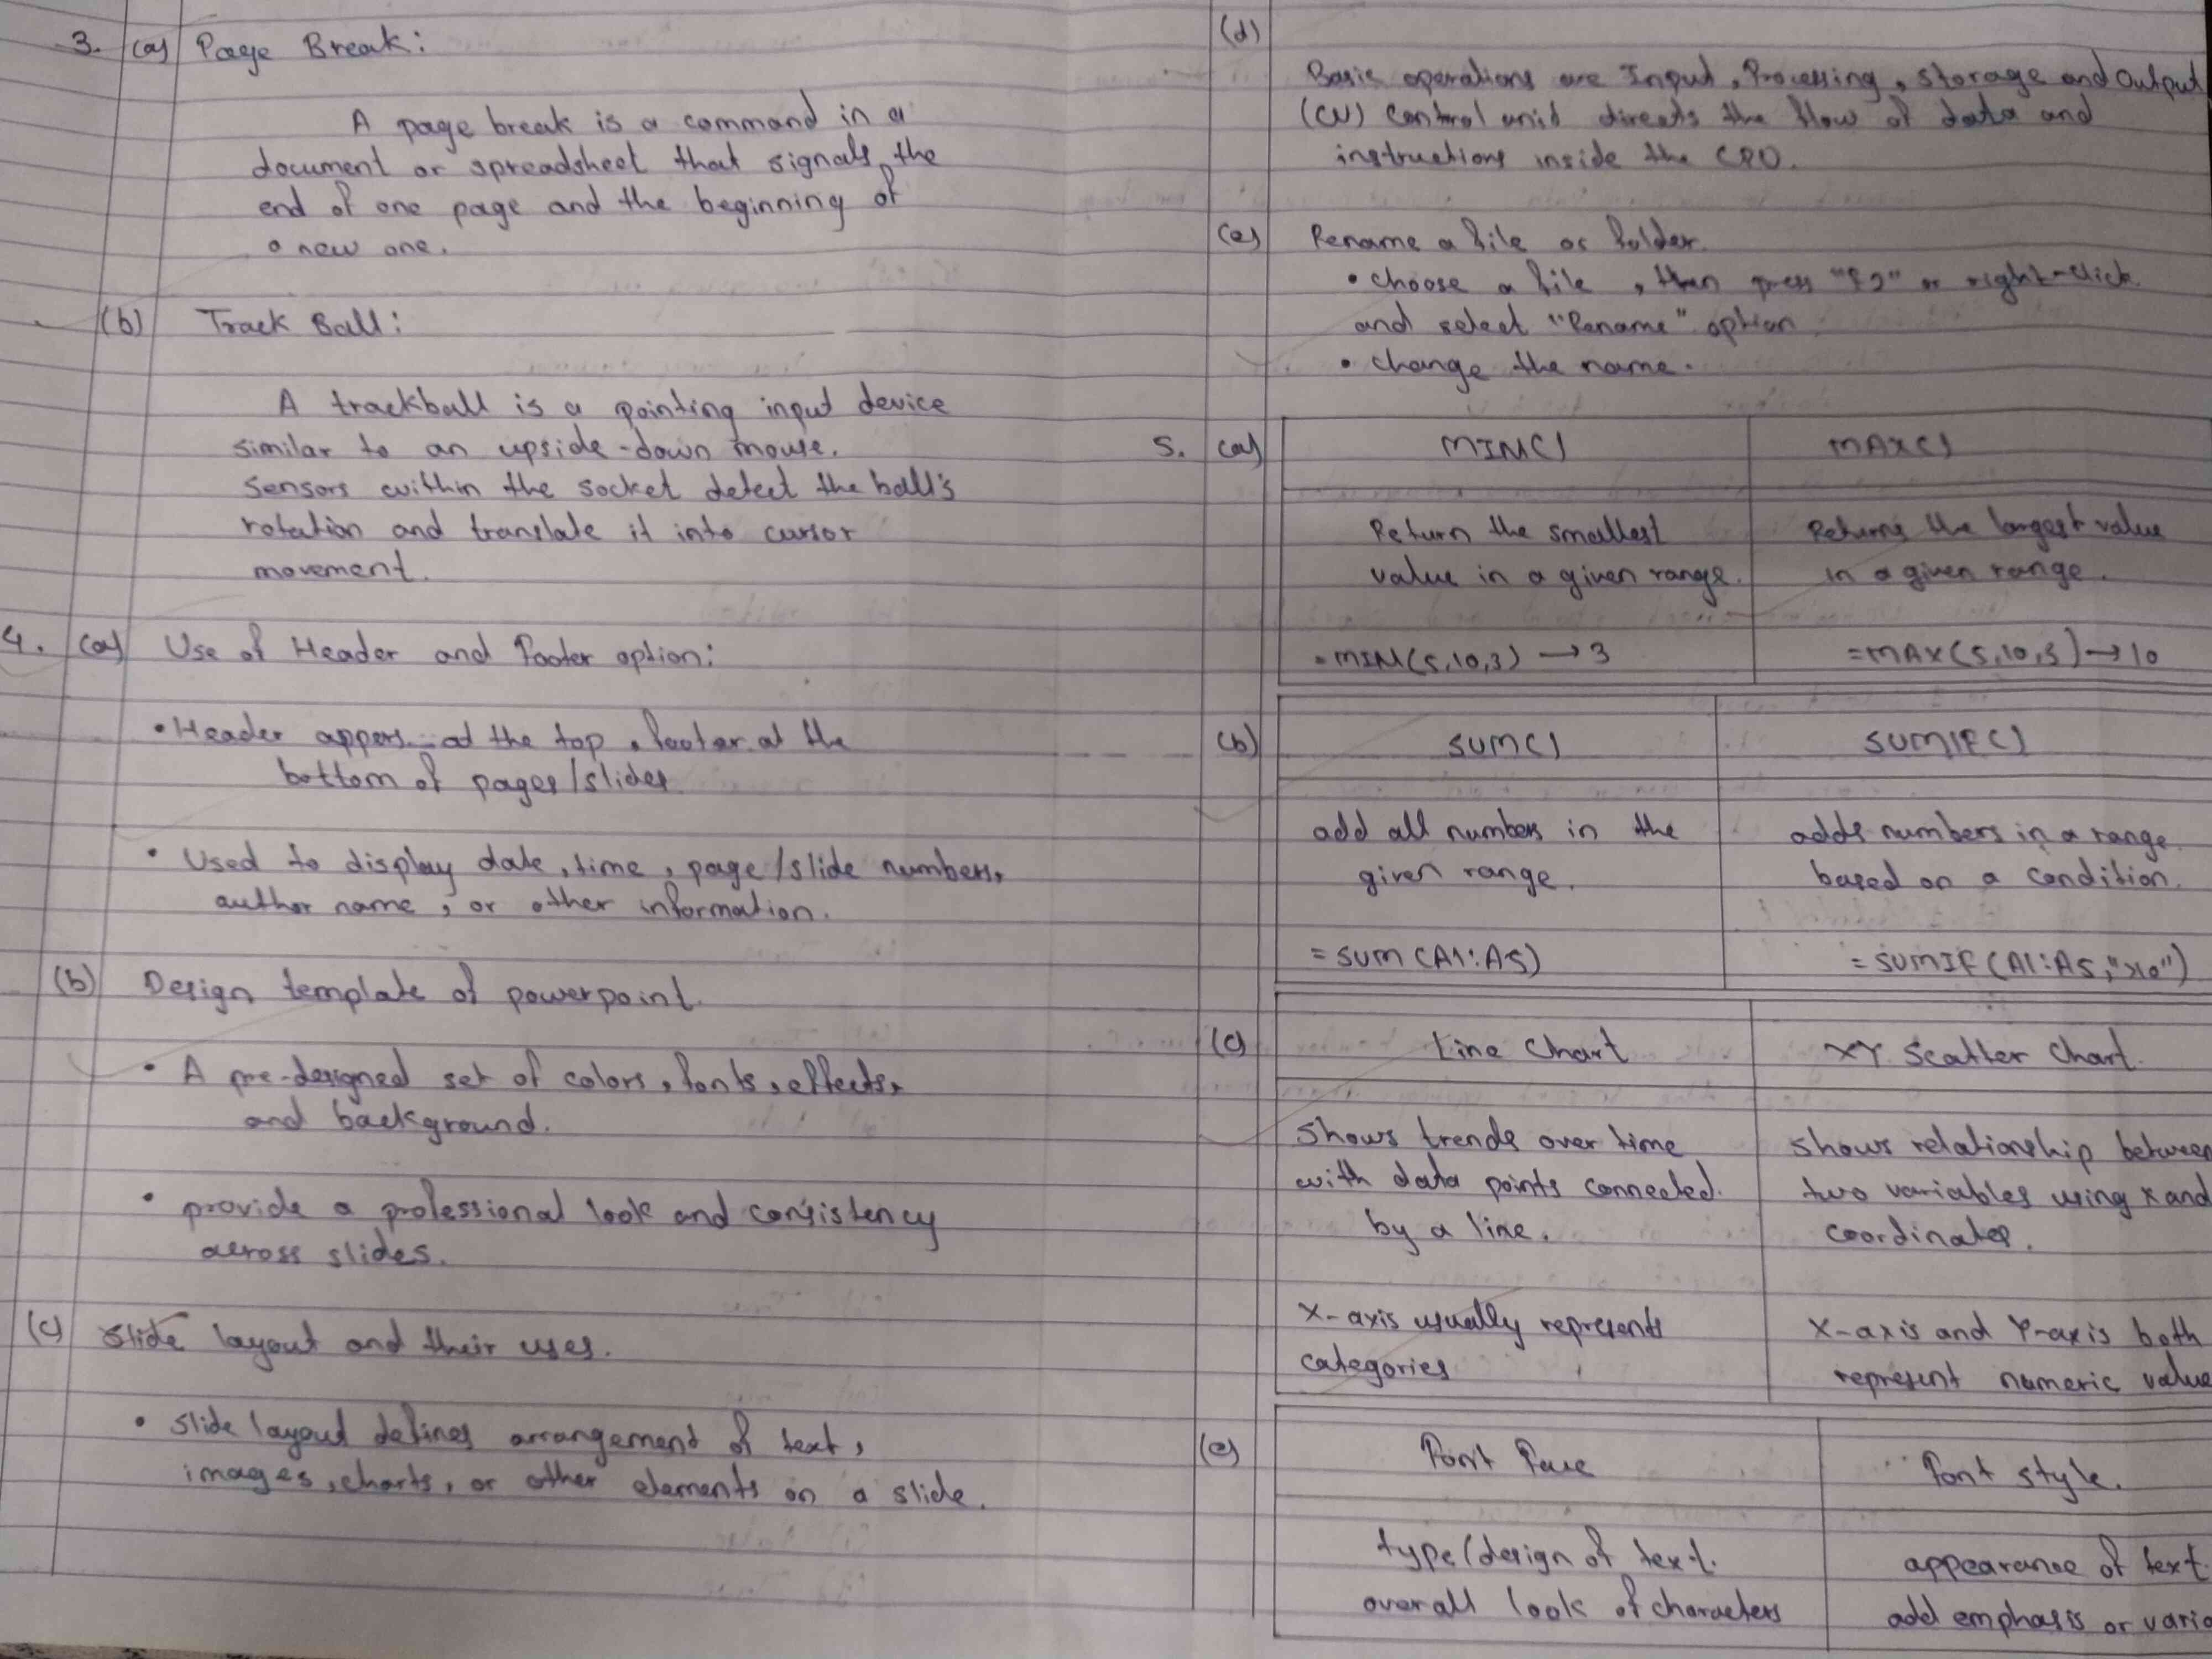 3. (a) Page Break:
A page break is a command in a
document or spreadsheet that signals the
end of one page and the beginning of
a new one.
(b) Track Ball:
A trackball is a pointing input device
similar to an upside-down mouse.
Sensors within the socket detect the ball's
rotation and translate it into cursor
movement.
4. (a) Use of Header and Footer option:
• Header appers at the top, footer at the
bottom of pages/slides
• Used to display date, time, page/slide numbers,
author name, or other information.
(b) Design template of powerpoint.
• A pre-designed set of colors, fonts, effects,
and background.
• provide a professional look and consistency
across slides.
(c) Slide layout and their uses.
• slide layout defines arrangement of text,
images, charts, or other elements on a slide.
(d)
Basic operations are Input, Processing, storage and Output
(CU) Control unit directs the flow of data and
instructions inside the CPU.
(e) Rename a file or folder.
• choose a file, then press "F2" or right-click
and select "Rename" option
• change the name.
5. (a) MIN() MAX()
Return the smallest Returns the largest value
value in a given range. in a given range.
=MIN(5,10,3) → 3 =MAX(5,10,3) → 10
(b) SUM() SUMIF()
add all numbers in the adds numbers in a range
given range. based on a condition.
=SUM(A1:A5) =SUMIF(A1:A5,">10")
(c) Line Chart XY Scatter Chart.
Shows trends over time shows relationship between
with data points connected. two variables using x and
by a line. coordinates.
X-axis usually represents X-axis and Y-axis both
categories represent numeric value
(e) Font Face Font style.
type/design of text. appearance of text.
overall look of characters add emphasis or